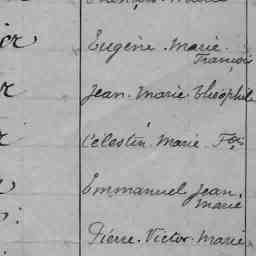 Eugène Marie
François
Jean Marie Théophile
Célestin Marie Fçs
Emmanuel Jean
Marie
Pierre Victor Marie